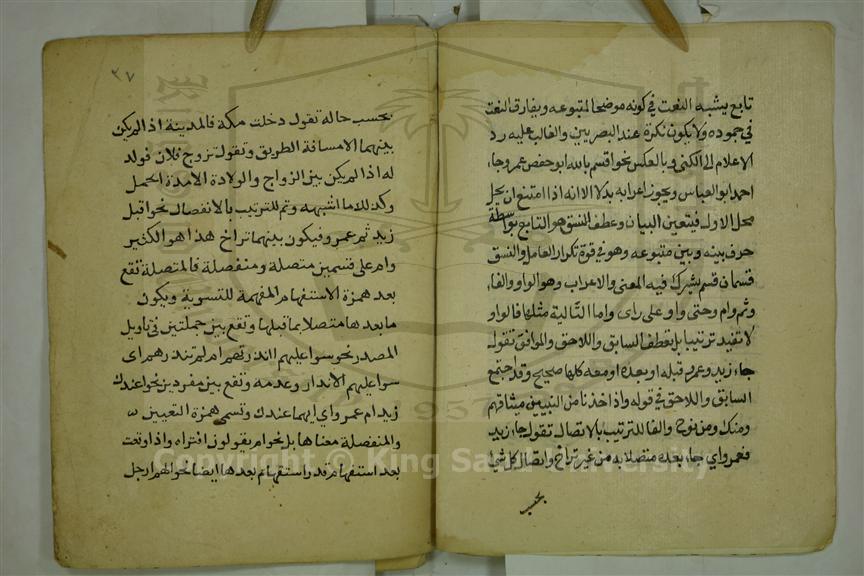 تابع يشبه النعت في كونه موضحا لمتبوعه ويفارق النعت
في جموده ولا يكون نكرة عند البصريين والغالب عليه رد
الاعلام الى الكنى وبالعكس نحو اقسم بالله ابو حفص عمر وجاء
احمد ابو العباس ويجوز اعرابه بدلا الا انه اذا امتنع ان يحل
محل الاول فيتعين البيان وعطف النسق هو التابع بواسطة
حرف بينه وبين متبوعه وهو في قوة تكرار العامل والنسق
قسمان قسم يشرك فيه المعنى والاعراب وهو الواو والفاء
وثم وام وحتى واو على راى واما التالية مثلها فالواو
لا تفيد ترتيبا بل تعطف السابق واللاحق والموافق تقول
جاء زيد وعمرو قبله او بعده او معه كلها صحيح وقد اجتمع
السابق واللاحق في قوله واذ اخذنا من النبيين ميثاقهم
ومنك ومن نوح والفا للترتيب بالاتصال تقول جاء زيد
فعمرو اي جاء بعده متصلا به من غير تراخ واتصال كل شئ
بحسب
٣٧
بحسب حاله تقول دخلت مكة فالمدينة اذا لم يكن
بينهما الا مسافة الطريق وتقول تزوج فلان فولد
له اذا لم يكن بين الزواج والولادة الا مدة الحمل
وكذلك ما اشبهه وثم للترتيب بالانفصال نحو اقبل
زيد ثم عمرو فيكون بينهما تراخ هذا هو الكثير
وام على قسمين متصلة ومنفصلة فالمتصلة تقع
بعد همزة الاستفهام المفهمة للتسوية ويكون
ما بعدها متصلا بما قبلها وتقع بين جملتين في تاويل
المصدر نحو سوا عليهم اانذرتهم ام لم تنذرهم اى
سوا عليهم الانذار وعدمه وتقع بين مفردين نحو اعندك
زيد ام عمرو اي ايهما عندك وتسمى همزة التعيين
والمنفصلة معناها بل نحو ام يقولون افتراه واذا وقعت
بعد استفهام قدر استفهام بعدها ايضا نحو الهم ارجل
Copyright © King Saud University
1957